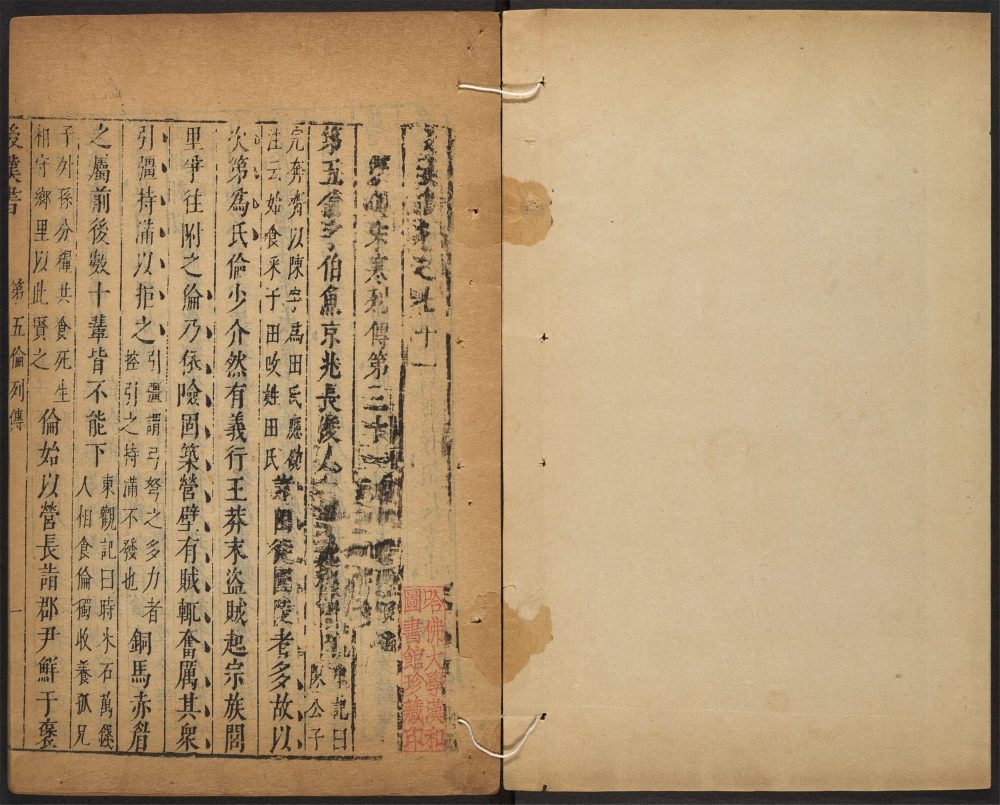 後漢書卷之七十一
第五鍾離宋寒列傳第三十一
第五倫字伯魚京兆長陵人
史記曰
陳公子
完奔齊以陳字為田氏應劭
注云始食采于田改姓田氏
諸田徙園陵者多故以
次第為氏倫少介然有義行王莽末盜賊起宗族閭
里爭往附之倫乃依險固築營壁有賊輒奮厲其眾
引彊持滿以拒之
引彊謂弓弩之多力者
控引之持滿不發也
銅馬赤眉
之屬前後數十輩皆不能下
東觀記曰時米石萬錢
人相食倫獨收養孤兄
子外孫分糧共食死生
相守鄉里以此賢之
倫始以營長詣郡尹鮮于褒
後漢書
第五倫列傳
一
哈佛大學漢和
圖書館珍藏印